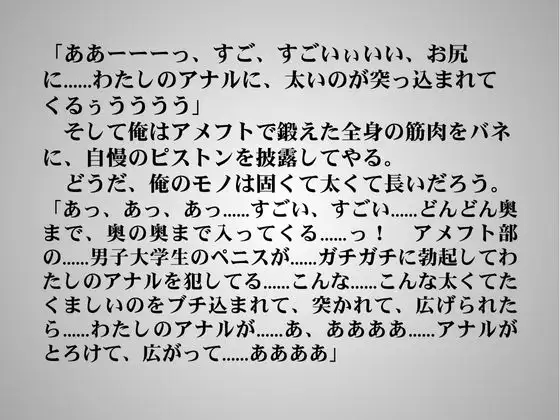 「ああーーーっ、すご、すごいぃいい、お尻
に……わたしのアナルに、太いのが突っ込まれて
くるぅうううう」
　そして俺はアメフトで鍛えた全身の筋肉をバネ
に、自慢のピストンを披露してやる。
　どうだ、俺のモノは固くて太くて長いだろう。
「あっ、あっ、あっ……すごい、すごい……どんどん奥
まで、奥の奥まで入ってくる……っ！　アメフト部
の……男子大学生のペニスが……ガチガチに勃起してわ
たしのアナルを犯してる……こんな……こんな太くてた
くましいのをブチ込まれて、突かれて、広げられた
ら……わたしのアナルが……あ、ああああ……アナルが
とろけて、広がって……ああああ」